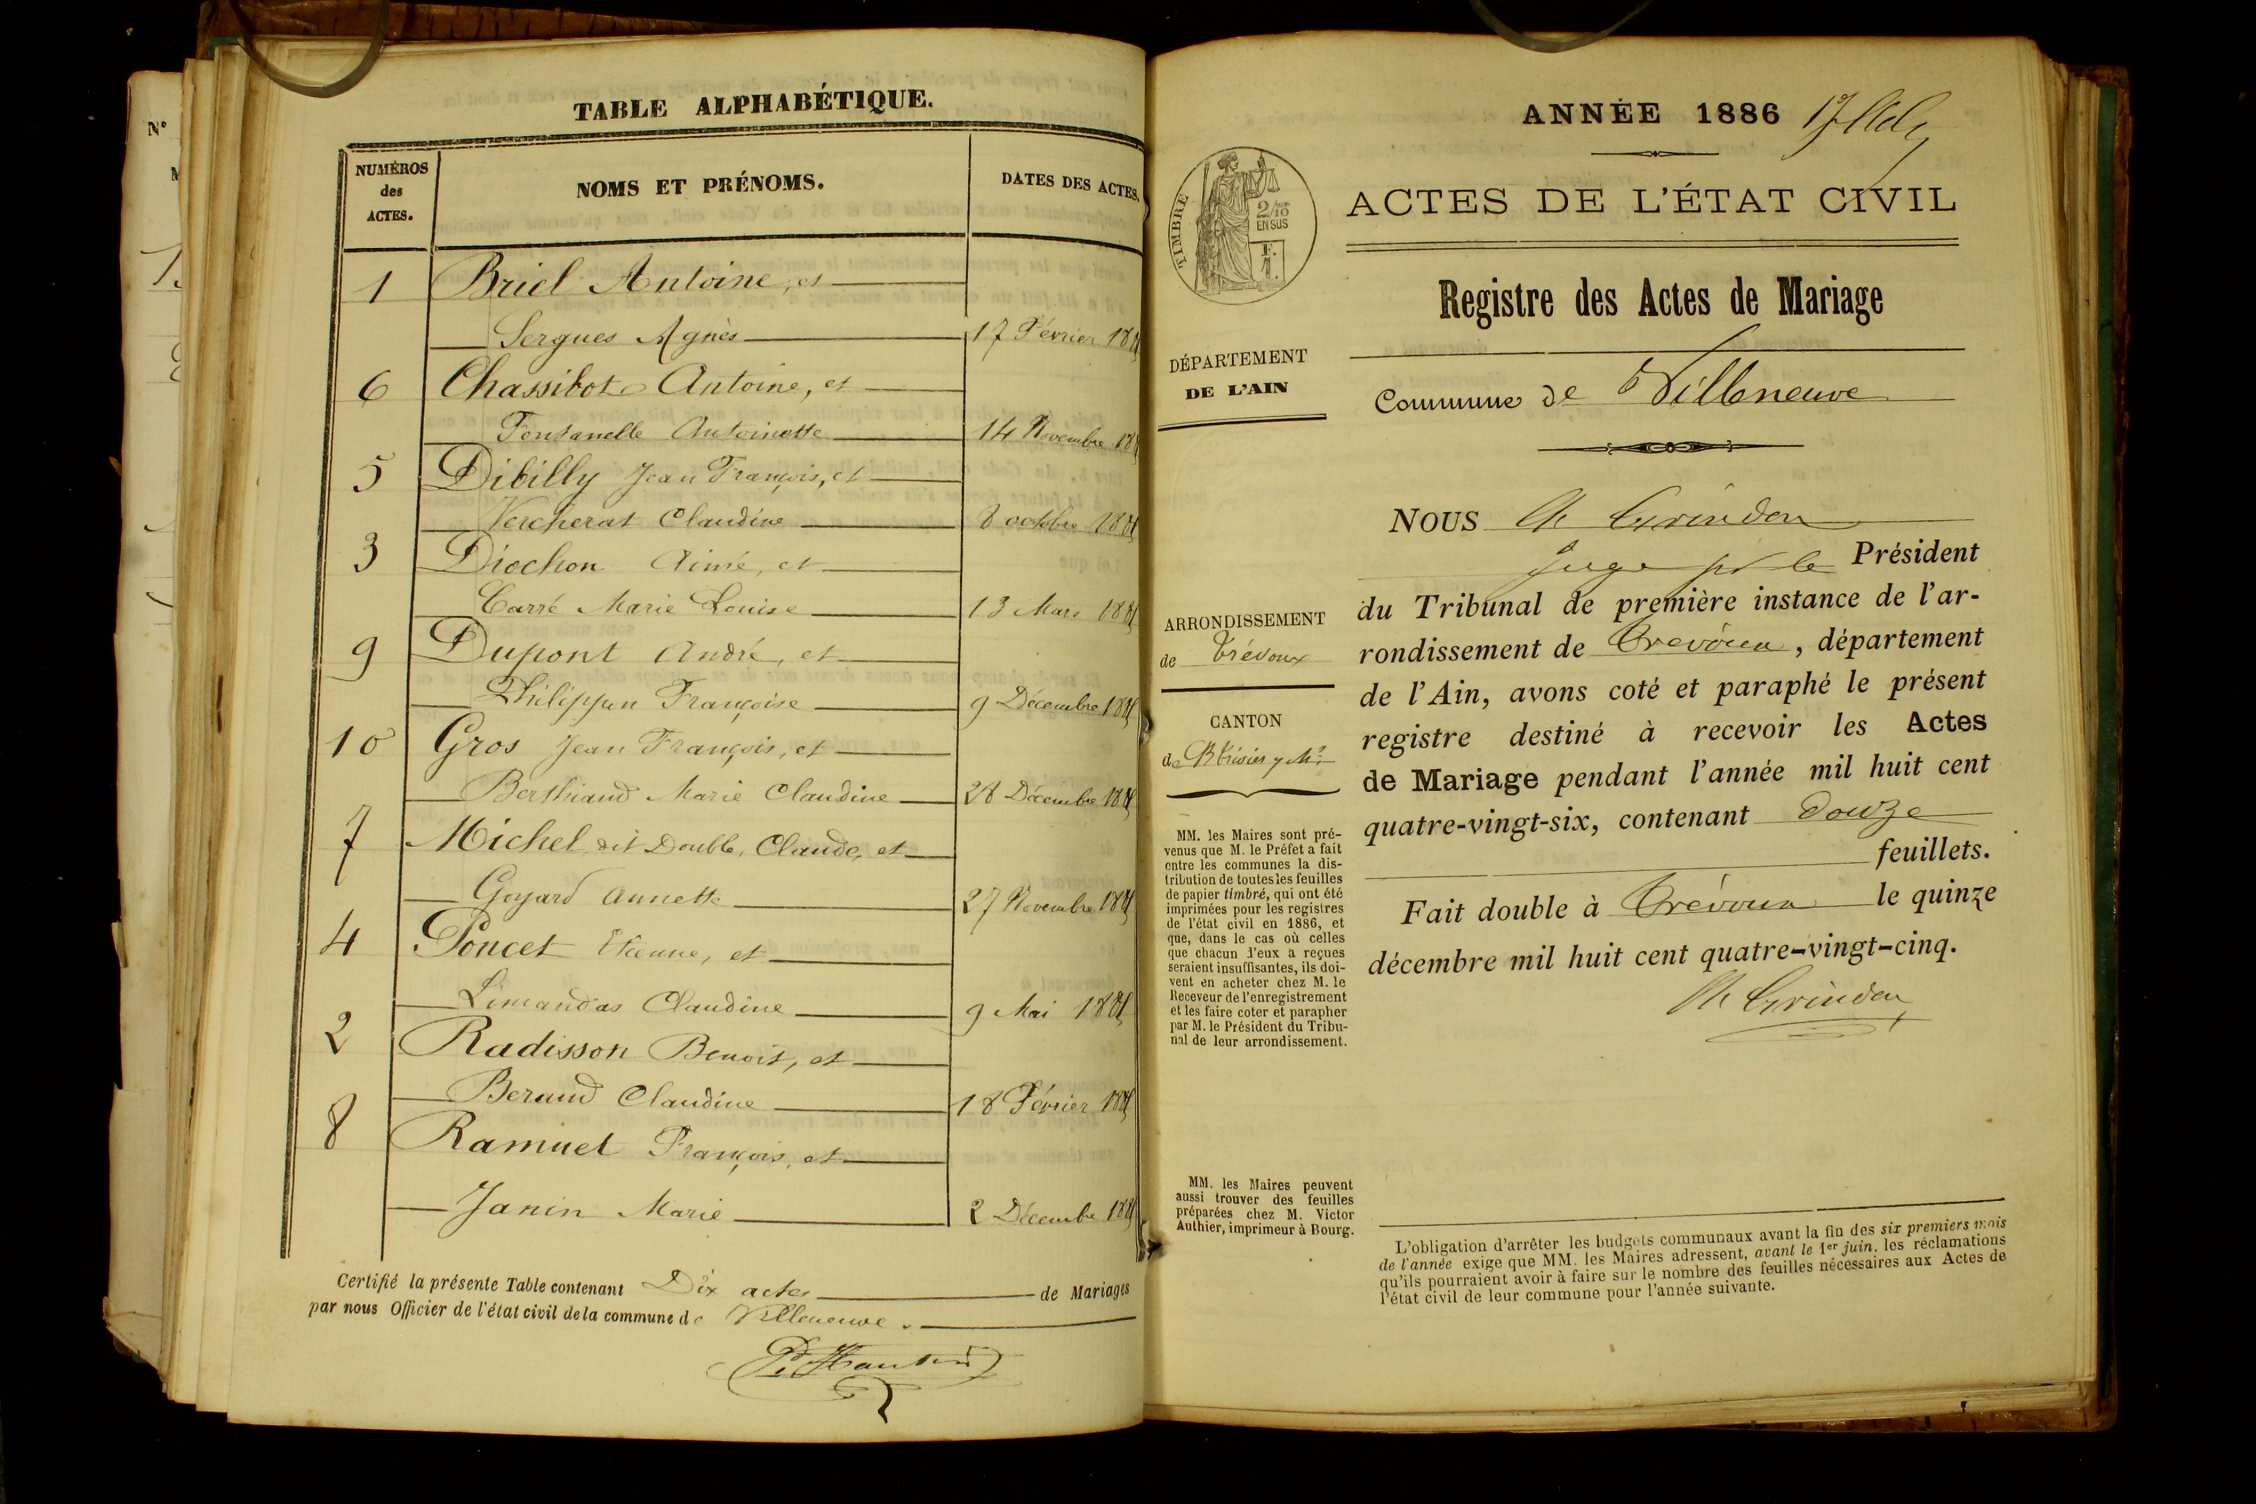 N°
TABLE ALPHABÉTIQUE.
NUMÉROS
des
ACTES.
NOMS ET PRÉNOMS.
DATES DES ACTES.
1 Briel Antoine, et
Sergues Agnès 17 Février 188
6 Chassibot Antoine, et
Fontanelle Antoinette 14 Novembre 188
5 Dibilly Jean François, et
Vercherat Claudine 8 octobre 188
3 Diochon Aimé, et
Carré Marie Louise 13 Mars 188
9 Dupont André, et
Philippon Françoise 9 Décembre 188
10 Gros Jean François, et
Berthiand Marie Claudine 28 Décembre 188
7 Michel dit Double, Claude, et
Goyard Annette 27 Novembre 188
4 Poncet Etienne, et
Limandas Claudine 9 Mai 188
2 Radisson Benoit, et
Beraud Claudine 18 Février 188
8 Ramuet François, et
Janin Marie 2 Décembre 188
Certifié la présente Table contenant Dix actes de Mariages
par nous Officier de l'état civil de la commune de Villeneuve.
ANNÉE 1886
ACTES DE L'ÉTAT CIVIL
TIMBRE
2/10
EN SUS
F.
1.
Registre des Actes de Mariage
DÉPARTEMENT
DE L'AIN
Commune de Villeneuve
ARRONDISSEMENT
de Trévoux
CANTON
de
MM. les Maires sont pré-
venus que M. le Préfet a fait
entre les communes la dis-
tribution de toutes les feuilles
de papier timbré, qui ont été
imprimées pour les registres
de l'état civil en 1886, et
que, dans le cas où celles
que chacun d'eux a reçues
seraient insuffisantes, ils doi-
vent en acheter chez M. le
Receveur de l'enregistrement
et les faire coter et parapher
par M. le Président du Tribu-
nal de leur arrondissement.
MM. les Maires peuvent
aussi trouver des feuilles
préparées chez M. Victor
Authier, imprimeur à Bourg.
NOUS Ch Grindon
Juge pr le Président
du Tribunal de première instance de l'ar-
rondissement de Trévoux, département
de l'Ain, avons coté et paraphé le présent
registre destiné à recevoir les Actes
de Mariage pendant l'année mil huit cent
quatre-vingt-six, contenant douze
feuillets.
Fait double à Trévoux le quinze
décembre mil huit cent quatre-vingt-cinq.
Ch Grindon
L'obligation d'arrêter les budgets communaux avant la fin des six premiers mois
de l'année exige que MM. les Maires adressent, avant le 1er juin, les réclamations
qu'ils pourraient avoir à faire sur le nombre des feuilles nécessaires aux Actes de
l'état civil de leur commune pour l'année suivante.